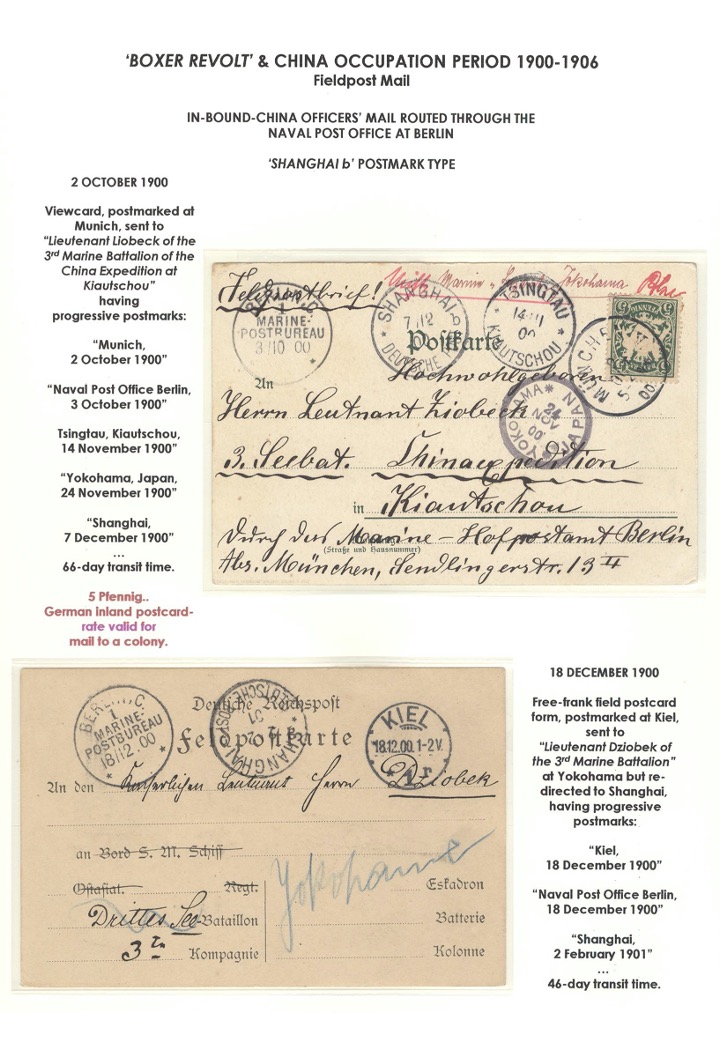 ‘BOXER REVOLT’ & CHINA OCCUPATION PERIOD 1900-1906
Fieldpost Mail
IN-BOUND-CHINA OFFICERS’ MAIL ROUTED THROUGH THE
NAVAL POST OFFICE AT BERLIN
‘SHANGHAI b’ POSTMARK TYPE
2 OCTOBER 1900
Viewcard, postmarked at
Munich, sent to
“Lieutenant Liobeck of the
3rd Marine Battalion of the
China Expedition at
Kiautschou”
having
progressive postmarks:
“Munich,
2 October 1900”
“Naval Post Office Berlin,
3 October 1900”
Tsingtau, Kiautschou,
14 November 1900”
“Yokohama, Japan,
24 November 1900”
“Shanghai,
7 December 1900”
...
66-day transit time.
5 Pfennig..
German inland postcard-
rate valid for
mail to a colony.
Feldpostbrief!
Marine - Jokohama
MARINE-
POSTBUREAU
3/10 00
SHANGHAI
7/12 b
DEUTSCHE
TSINGTAU
14/11
00
KIAUTSCHOU
Postkarte
MÜNCHEN
00
YOKOHAMA JAPAN
24
NOV
00
An
Hochwohlgeboren
Herrn Leutnant Ziobeck
3. Seebat. Chinaexpedition
in Kiautschou
Durch das Marine-Hofpostamt Berlin
(Straße und Hausnummer)
Abs. München, Sendlingerstr. 13 II
18 DECEMBER 1900
Free-frank field postcard
form, postmarked at Kiel,
sent to
“Lieutenant Dziobek of
the 3rd Marine Battalion”
at Yokohama but re-
directed to Shanghai,
having progressive
postmarks:
“Kiel,
18 December 1900”
“Naval Post Office Berlin,
18 December 1900”
“Shanghai,
2 February 1901”
...
46-day transit time.
BERLIN C.
1
MARINE-
POSTBUREAU
18/12 00
Deutsche Reichspost
SHANGHAI
DEUTSCHE POST
KIEL
18.12.00.1-2V.
1r
Feldpostkarte
An den Kaiserlichen Leutnant Herrn Dziobek
an Bord S. M. Schiff
Ostasiat. Regt. Eskadron
Jokohama
Drittes See Bataillon Batterie
3te Kompagnie Kolonne